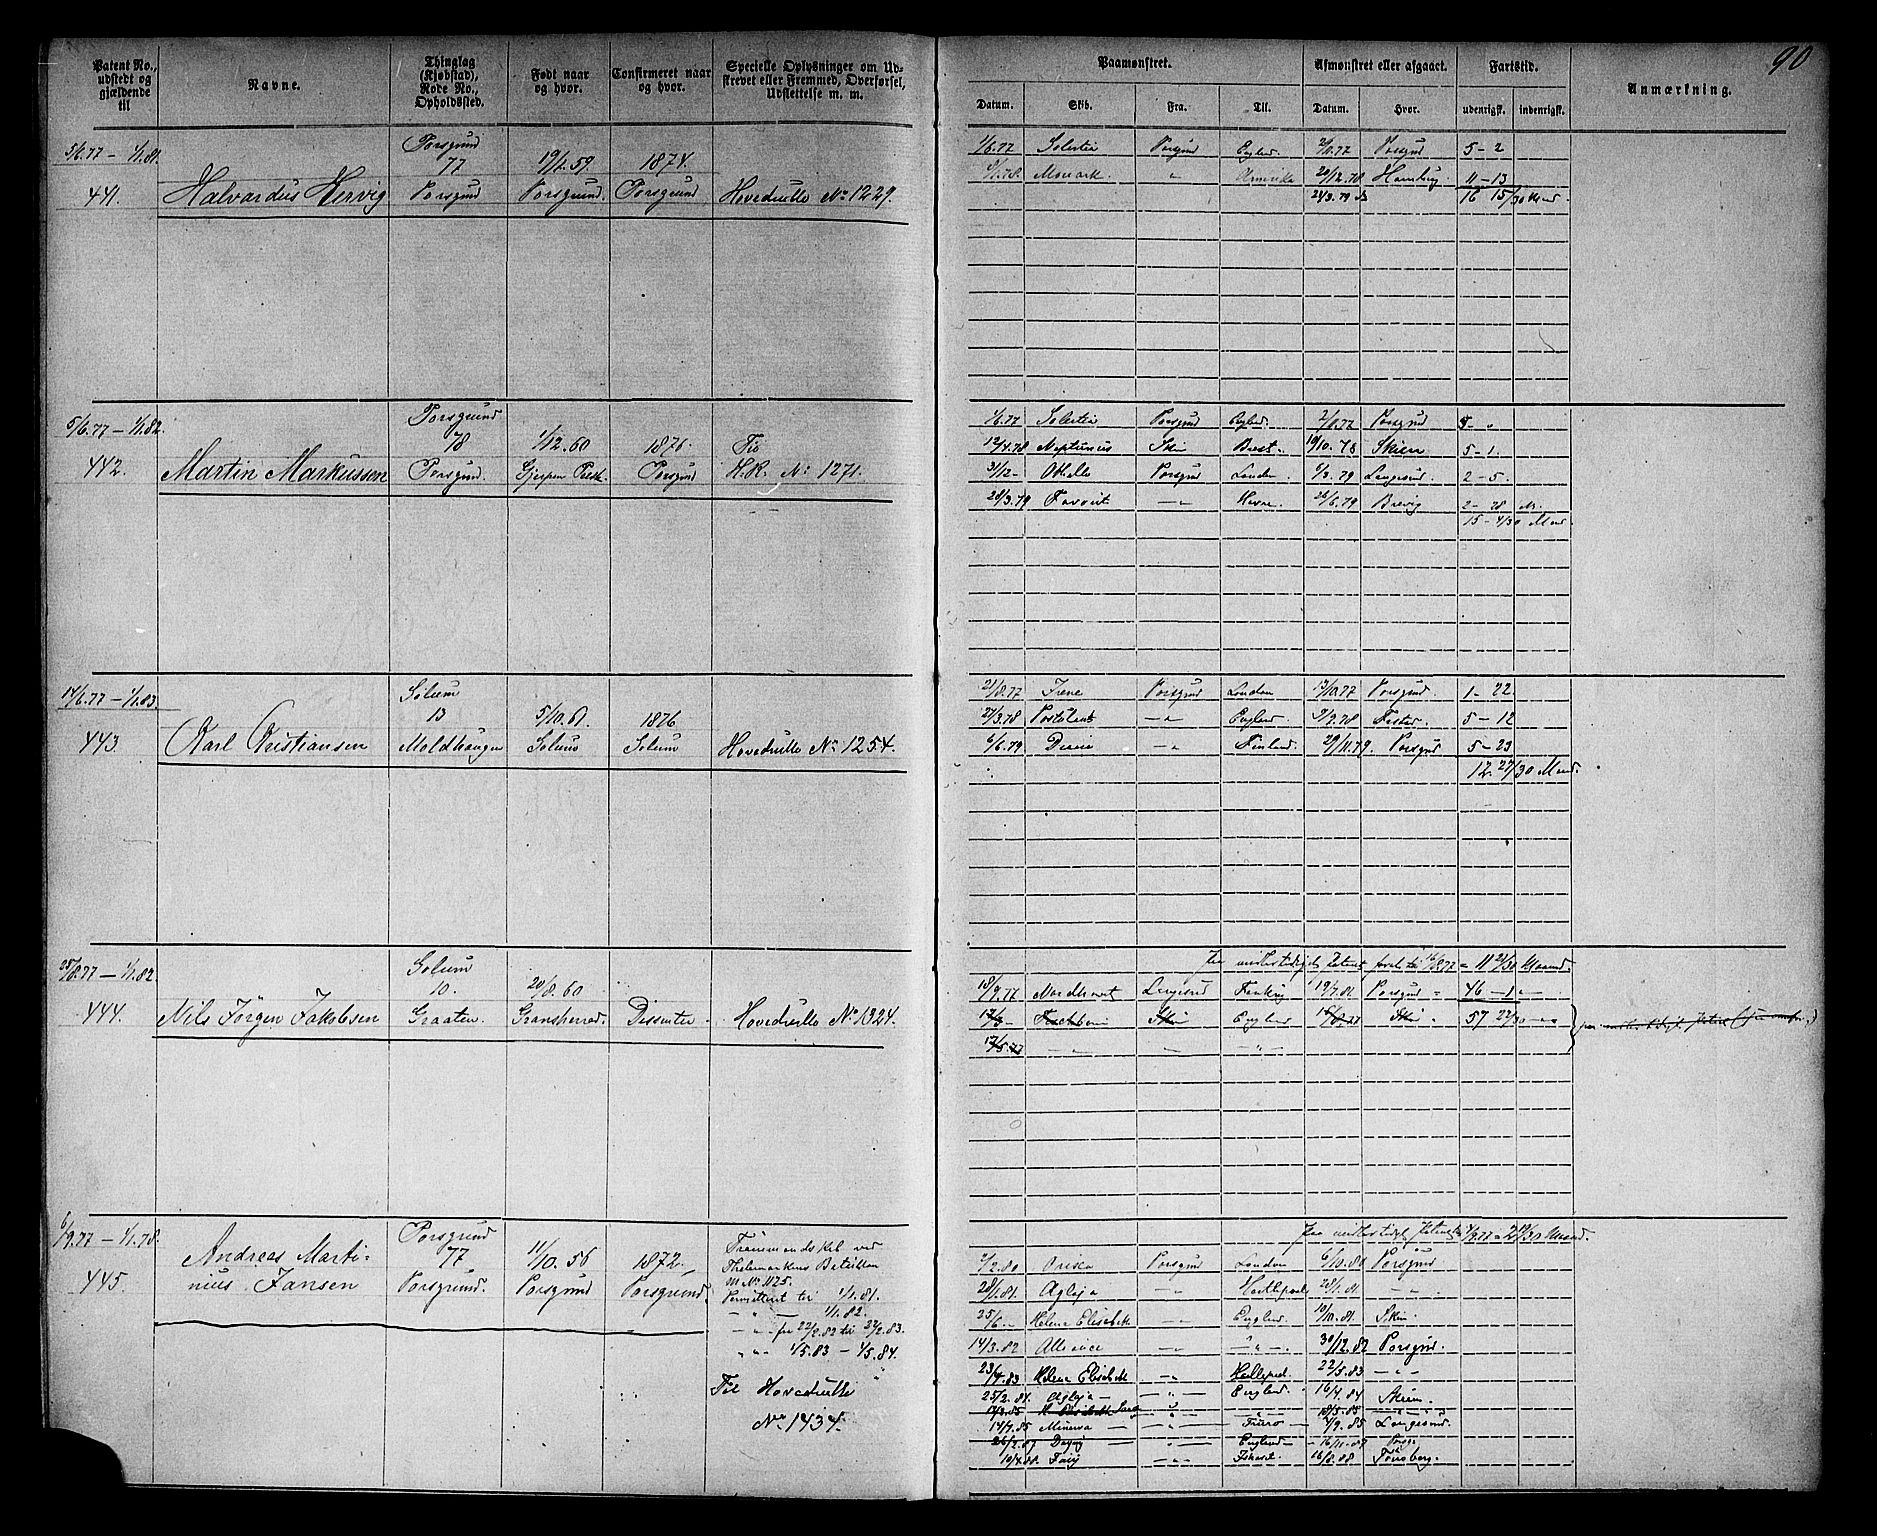 90
Patent No., udstedt og gjældende til
Navne.
Thinglag (Kjøbstad), Rode No., Opholdssted.
Født naar og hvor.
Confirmeret naar og hvor.
Specielle Oplysninger om Udskrevet eller Fremmed, Overførsel, Udslettelse m. m.
Paamønstret.
Afmønstret eller afgaaet.
Fartstid.
Anmærkning.
Datum. Skib. Fra. Til. Datum. Hvor. udenrigsk. indenrigsk.
5/6.77 — 1/1.81. Porsgrund
77 19/2.59. 1874.
441. Halvardus Hervig Porsgrund Porsgrund. Porsgrund Hovedrulle No 1229.
1/6.77 Solertia Porsgrund England. 2/10.77 Porsgrund 5-2
Monark " Amerika 20/12.78 Hamburg. 11-13
24/3.79 16 15/30 Mnd.
5/6.77 — 1/1.82. Porsgrund
78 1/12.60 1876. Til
442. Martin Markussen Porsgrund. Gjerpen Porsgrund H.R. No 1271.
1/6.77 Solertia Porsgrund England. 2/10.77 Porsgrund 5- "
12/4.78 Neptunus Skien Brest. 19/10.78 Skien 5-1.
31/12- Othello Porsgrund London 6/3.79 Langesund. 2-5.
20/3.79 Favorit — " Havre. 26/6.79 Brevig 2-28
15-4/30 Mnd.
14/6.77 — 1/1.83. Solum
13 5/10.61. 1876
443. Karl Kristiansen Moldhaugen Solum Solum Hovedrulle No 1254.
21/8.77 Irene Porsgrund London 17/10.77 Porsgrund. 1-22.
27/3.78 Postillent — " England. 9/9.78 5-12
6/6.79 — " Finland. 29/11.79. Porsgrund 5-23
12. 27/30 Mnd.
25/8.77 — 1/1.82. Solum
10. 20/8.60
444. Nils Jörgen Jakobsen Graaten. Gransherred. Dissenter. Hovedrulle No 1324.
midlertidigt Patent 16/8.77 = 11 21/30 Maaned.
18/9.77 Nordhavet Langesund 19/7.81 Porsgrund " 46-1
Skien England Skien " 57 22/30
12/5.77 — " — " — " —
6/9.77 — 1/1.78. Porsgrund
Andreas Marti- 77 11/10.56 1872.
445. nius Jansen Porsgrund. Porsgrund Porsgrund.
Thelemarkens Bataillon
M No 1125.
Permitteret til 1/1.81.
— " — 1/1.82.
— " — fra 22/2.82 til 22/2.83.
" " 1/5.83 — 1/5.84.
Til Hovedrulle
No 1434.
midlertidigt Patent
2/2.80 Porsgrund London 6/10.80 Porsgrund
20/1.81. Aglaja — " Hartlepool 28/1.81. — " .
25/6 - Helene Elisabeth — " England. 10/10.81. Skien.
14/3.82 Alliance — " — " — . 30/12.82 Porsgrund.
23/4.83 Helene Elisabeth — " 22/5.83 — " —
25/2.84. Aglaja — — " — England. 16/4.84 Skien.
14/3.85 18/5.85
14/7.85 Minerva — — " — Truro — 4/9.85 Langesund.
26/2.87 — " — England — 16/11.87
10/4.88. — " . 16/8.88 Tönsberg.